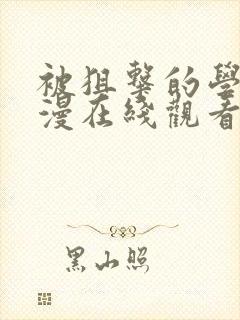 被狙擊的學
漫在綫觀看
黑山照